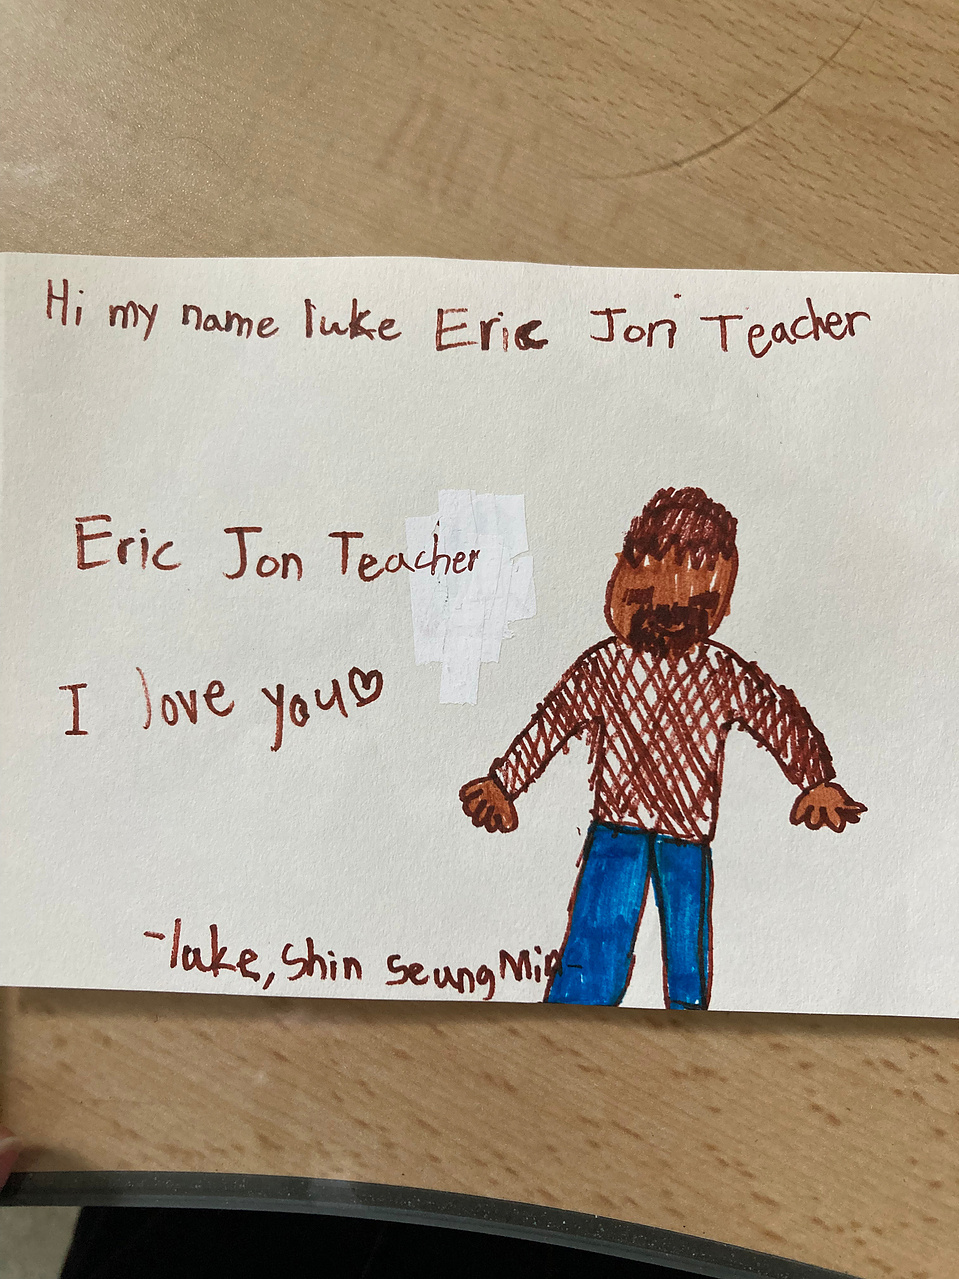 Hi my name luke Eric Jon Teacher
Eric Jon Teacher
I love you♡
-luke, Shin SeungMin-